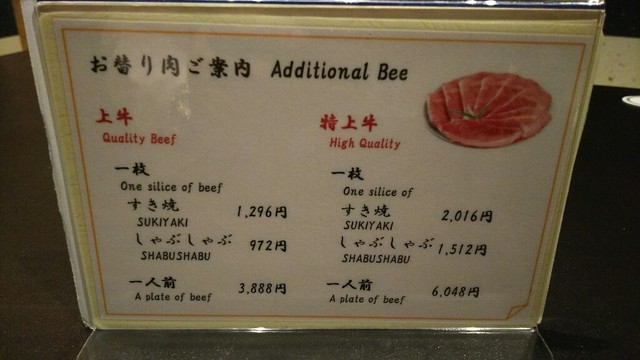 お替り肉ご案内 Additional Bee
上牛
Quality Beef
一枚
One silice of beef
すき焼 1,296円
SUKIYAKI
しゃぶしゃぶ 972円
SHABUSHABU
一人前 3,888円
A plate of beef
特上牛
High Quality
一枚
One silice of
すき焼 2,016円
SUKIYAKI
しゃぶしゃぶ 1,512円
SHABUSHABU
一人前 6,048円
A plate of beef